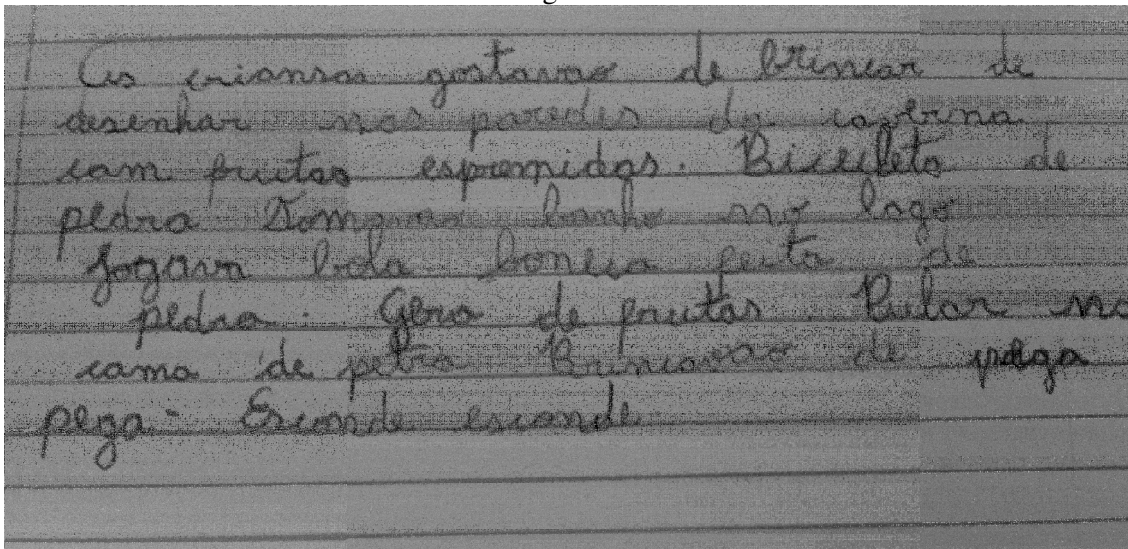 As criansas gostavao de brincar de
desenhar nas paredes da caverna
com frutas espremidas. Bicicleta de
pedra Tomavao banho no lago
Jogava bola boneca feita de
pedra. Gero de frutas. Pular na
cama de petra Brincavao de pega
pega - Esconde esconde